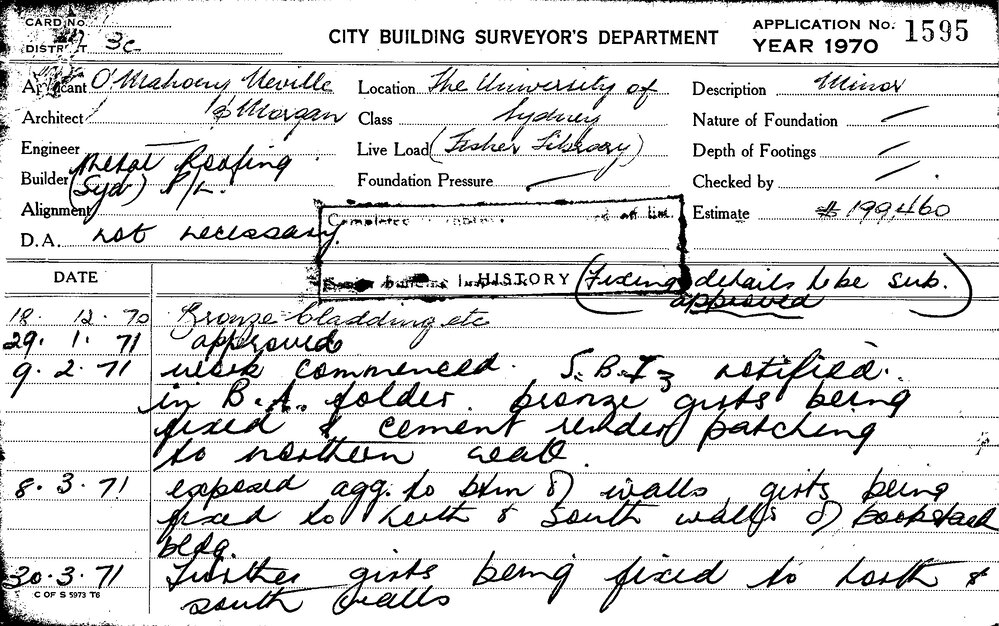 CARD No.
DISTRICT 3c
CITY BUILDING SURVEYOR'S DEPARTMENT
APPLICATION No. 1595
YEAR 1970
Applicant O'Mahony Neville
Architect & Morgan
Engineer
Builder Metal Roofing
(Syd) P/L.
Alignment
D.A. not necessary.
Location The University of
Class Sydney
Live Load (Fisher Library)
Foundation Pressure
Description Minor
Nature of Foundation
Depth of Footings
Checked by
Estimate $199,460
Completed
DATE
HISTORY (Fixing details to be sub.
approved)
18. 12. 70 Bronze cladding etc
29. 1. 71 approved
9. 2. 71 work commenced. S.B.I. notified.
in B.A. folder. bronze girts being
fixed & cement render patching
to northern wall.
8. 3. 71 exposed agg. to btm of walls, girts being
fixed to north & south walls of bookstack
bldg.
30. 3. 71 Further girts being fixed to north &
south walls
C OF S 5973 T6